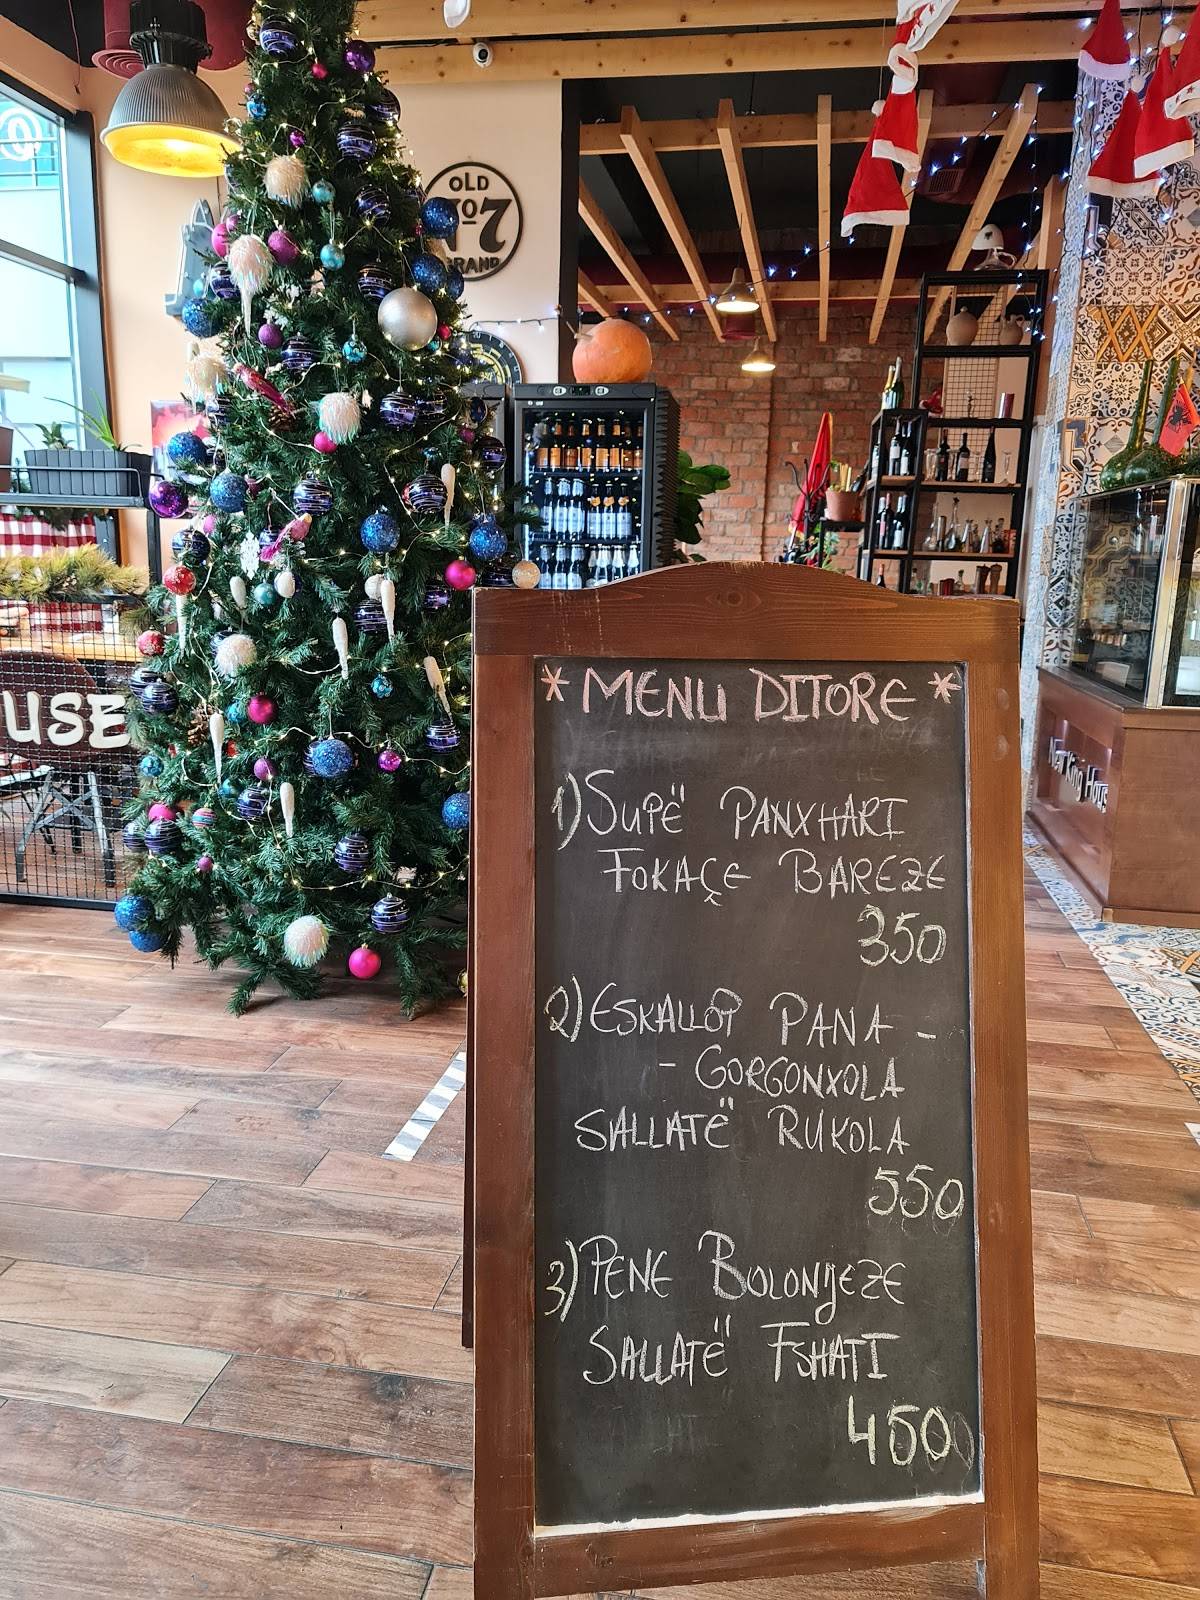 OLD
No 7
BRAND
USE
New King House
* MENU DITORE *
1) SUPË PANXHARI
FOKAÇE BAREZE
350
2) ESKALLOP PANA -
- GORGONXOLA
SALLATË RUKOLA
550
3) PENE BOLONJEZE
SALLATË FSHATI
450